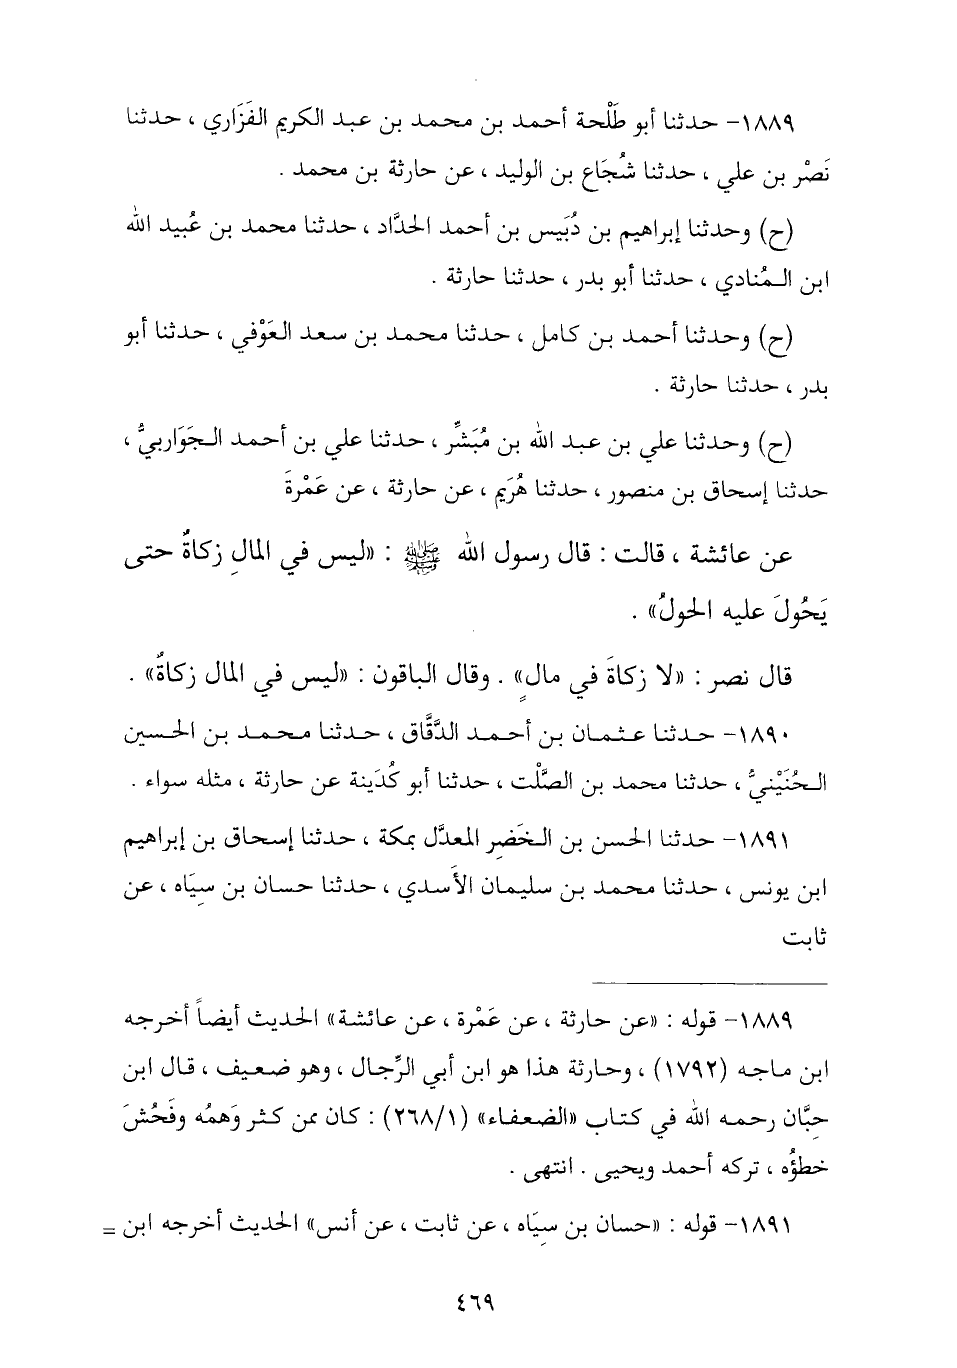 ١٨٨٩- حدثنا أبو طَلْحة أحمد بن محمد بن عبد الكريم الفَزَاري ، حدثنا
نَصْر بن علي ، حدثنا شُجَاع بن الوليد ، عن حارثة بن محمد .
(ح) وحدثنا إبراهيم بن دُبَيس بن أحمد الحدَّاد ، حدثنا محمد بن عُبيد الله
ابن المُنادي ، حدثنا أبو بدر ، حدثنا حارثة .
(ح) وحدثنا أحمد بن كامل ، حدثنا محمد بن سعد العَوْفي ، حدثنا أبو
بدر ، حدثنا حارثة .
(ح) وحدثنا علي بن عبد الله بن مُبَشِّر ، حدثنا علي بن أحمد الجَوَاربيُّ ،
حدثنا إسحاق بن منصور ، حدثنا هُرَيم ، عن حارثة ، عن عَمْرةَ
عن عائشة ، قالت : قال رسول الله ﷺ : «ليس في المالِ زكاةٌ حتى
يَحُولَ عليه الحولُ» .
قال نصر : «لا زكاةَ في مالٍ» . وقال الباقون : «ليس في المال زكاةٌ» .
١٨٩٠- حدثنا عثمان بن أحمد الدَّقَّاق ، حدثنا محمد بن الحسين
الحُنَيْنيُّ ، حدثنا محمد بن الصَّلْت ، حدثنا أبو كُدَينة عن حارثة ، مثله سواء .
١٨٩١- حدثنا الحسن بن الخَضِر المعدَّل بمكة ، حدثنا إسحاق بن إبراهيم
ابن يونس ، حدثنا محمد بن سليمان الأَسدي ، حدثنا حسان بن سِيَاه ، عن
ثابت
١٨٨٩- قوله : «عن حارثة ، عن عَمْرة ، عن عائشة» الحديث أيضاً أخرجه
ابن ماجه (١٧٩٢) ، وحارثة هذا هو ابن أبي الرِّجال ، وهو ضعيف ، قال ابن
حِبَّان رحمه الله في كتاب «الضعفاء» (٢٦٨/١) : كان ممن كثر وَهمُه وفَحُشَ
خطؤُه ، تركه أحمد ويحيى . انتهى .
١٨٩١- قوله : «حسان بن سِيَاه ، عن ثابت ، عن أنس» الحديث أخرجه ابن =
٤٦٩